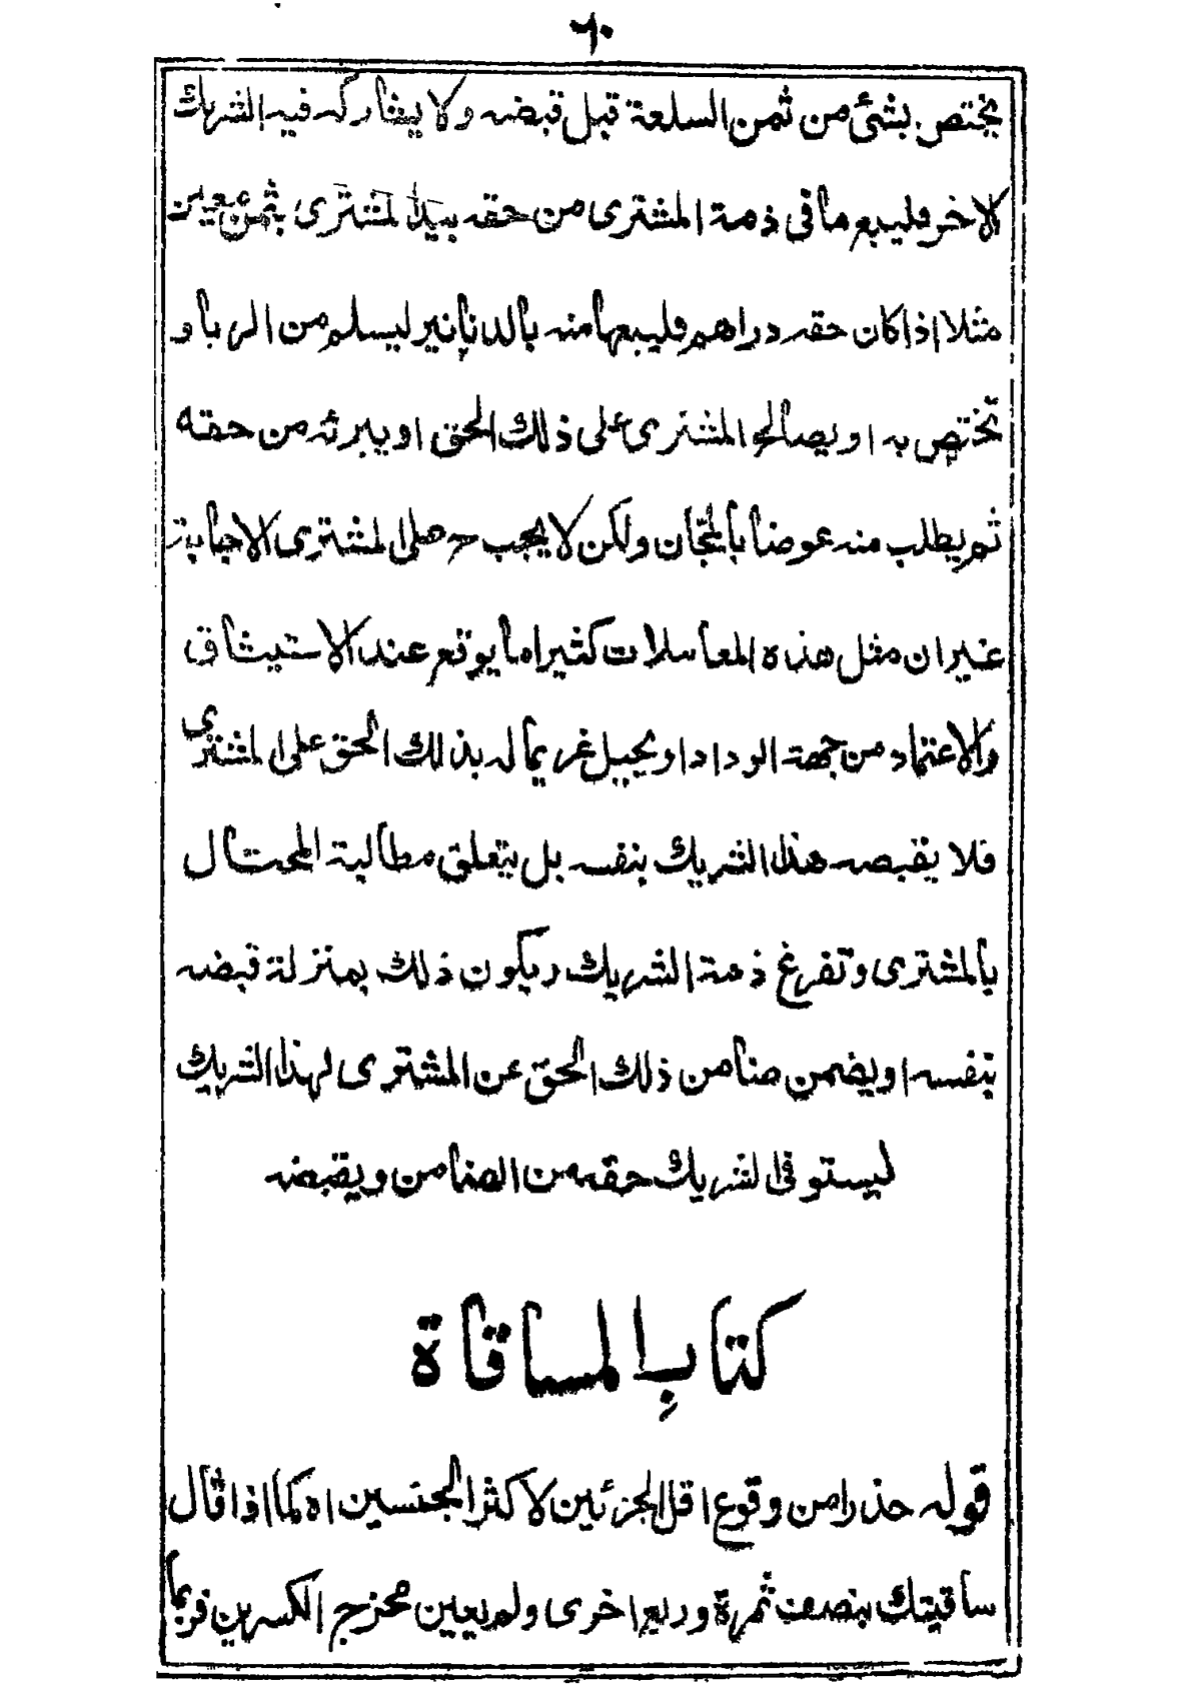 ٦٠
يختص بشئ من ثمن السلعة قبل قبضه ولا يشاركه فيه الشريك
الاخر فليبع ما فى ذمة المشترى من حقه بيد المشترى بثمن معين
مثلا اذا كان حقه دراهم فليبعها منه بالدنانير ليسلم من الربا و
تختص به او يصالح المشترى على ذلك الحق او يبرئه من حقه
ثم يطلب منه عوضا بالمجان ولكن لا يجب ح على المشترى الاجابة
غير ان مثل هذه المعاملات كثيرا ما يوقع عند الاستيثاق
والاعتماد من جهة الوداد او يحيل غريما له بذلك الحق على المشترى
فلا يقبضه هذا الشريك بنفسه بل يتعلق مطالبة المحتال
بالمشترى وتفرغ ذمة الشريك ويكون ذلك بمنزلة قبضه
بنفسه او يضمن ضامن ذلك الحق عن المشترى لهذا الشريك
ليستوفى الشريك حقه من الضامن ويقبضه
كتابِ المساقاة
قوله حذرا من وقوع اقل الجزئين لاكثر الجنسين اه كما اذا قال
ساقيتك بنصف ثمرة وربع اخرى ولم يعين مخرج الكسرين فربما